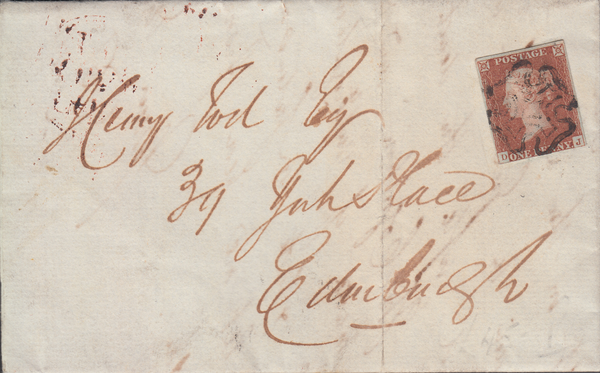 Henry Tod Esq
39 York Place
Edinburgh
POSTAGE
D ONE PENNY J